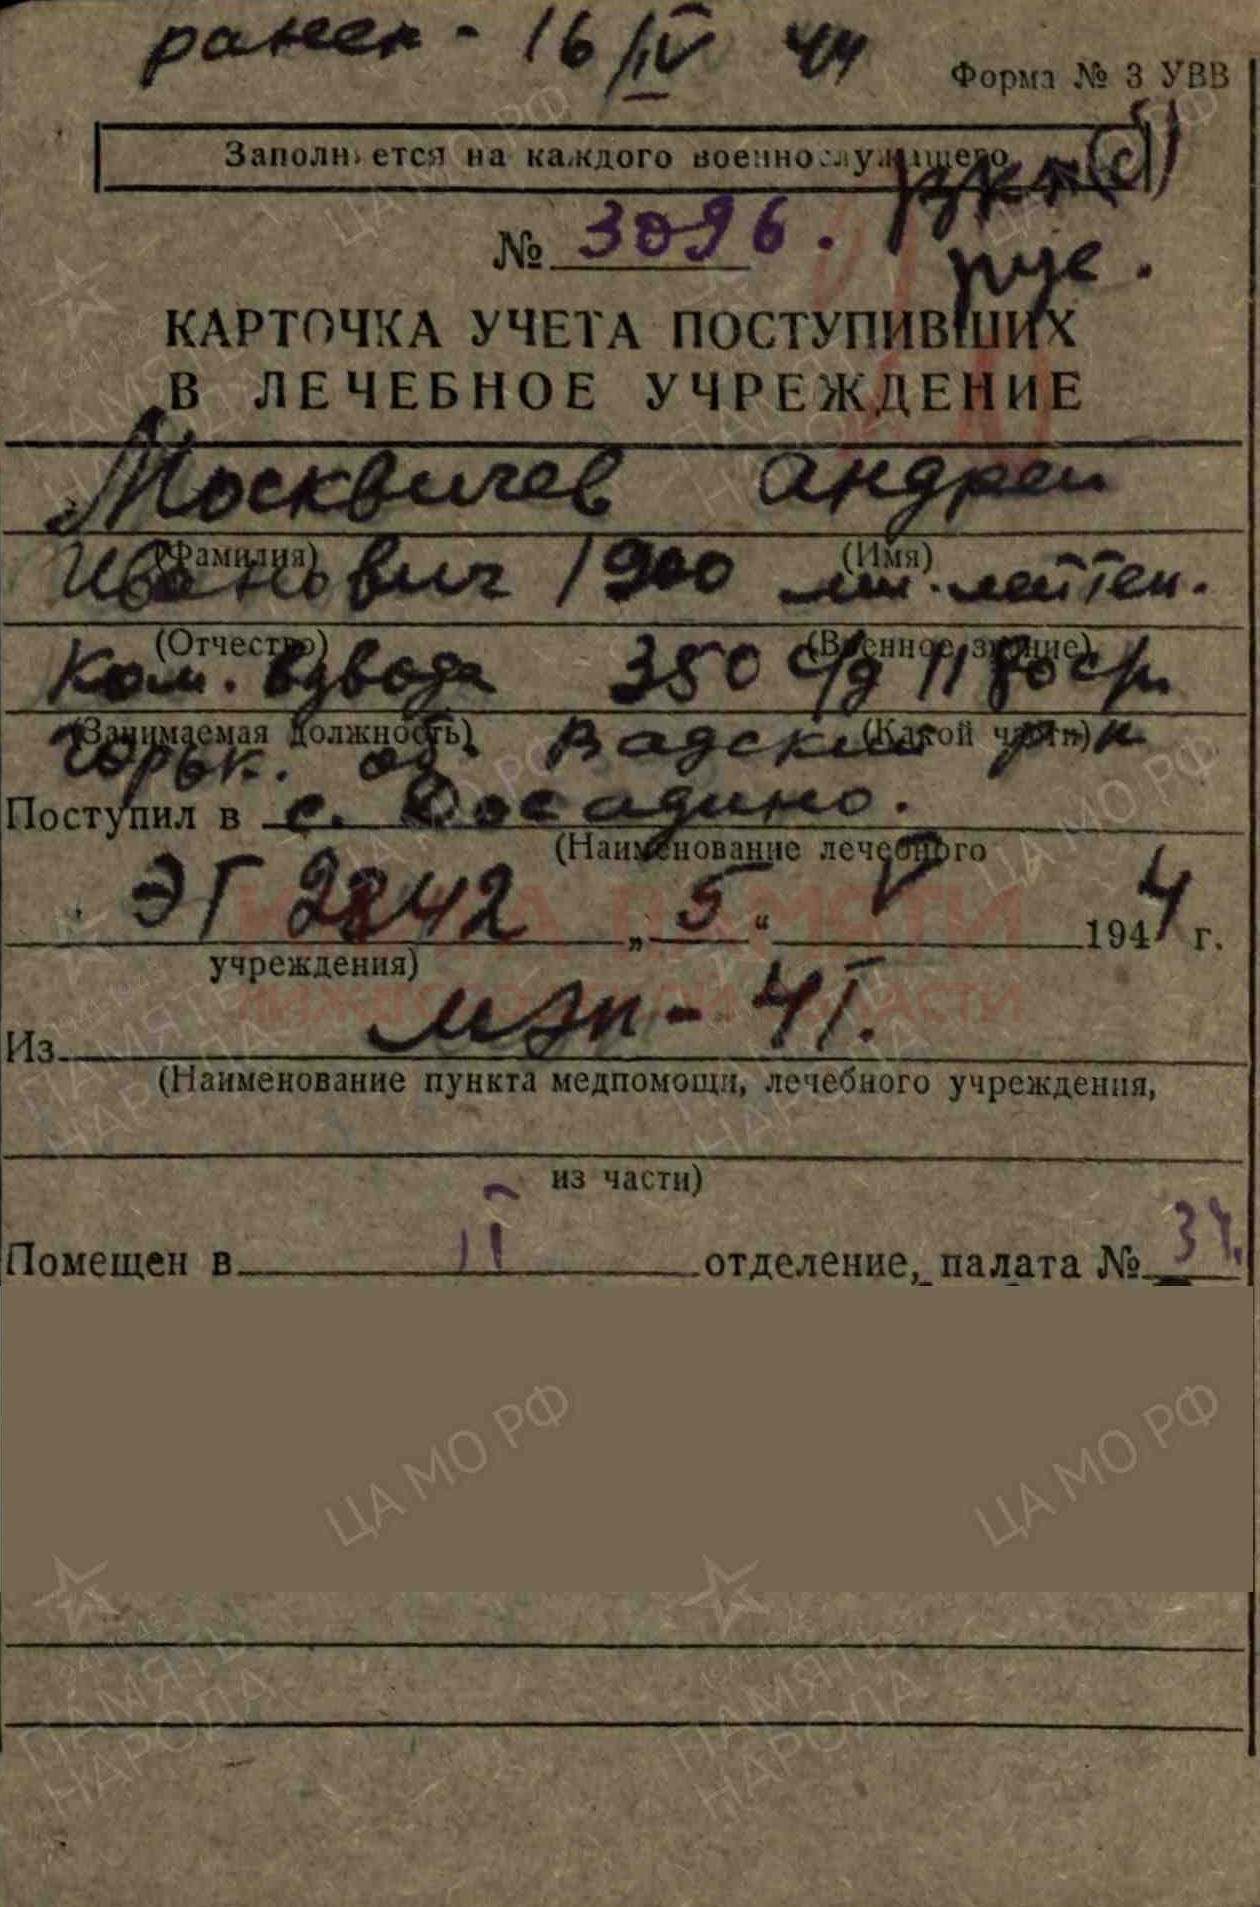 ранен - 16/IV 44
Форма № 3 УВВ
Заполняется на каждого военнослужащего
№ 3096.
рус.
КАРТОЧКА УЧЕТА ПОСТУПИВШИХ
В ЛЕЧЕБНОЕ УЧРЕЖДЕНИЕ
Москвичев Андрей
(Фамилия) (Имя)
Иванович 1900 мл. лейтен.
(Отчество) (Военное звание)
Ком. взвода 350 с/д 1180 ср.
(Занимаемая должность) (Какой части)
Горьк. об. Вадский р-н
Поступил в с. Досадино.
(Наименование лечебного
ЭГ 2842 „5“ V 1944 г.
учреждения)
КНИГА ПАМЯТИ
НИЖЕГОРОДСКОЙ ОБЛАСТИ
Из МЭП - 41.
(Наименование пункта медпомощи, лечебного учреждения,
из части)
Помещен в II отделение, палата № 34.
ЦА МО РФ
ЦА МО РФ
1941-1945
ПАМЯТЬ
НАРОДА